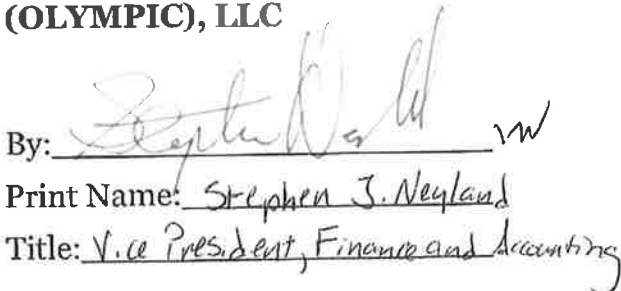 (OLYMPIC), LLC
By:
Print Name: Stephen J. Neyland
Title: Vice President, Finance and Accounting